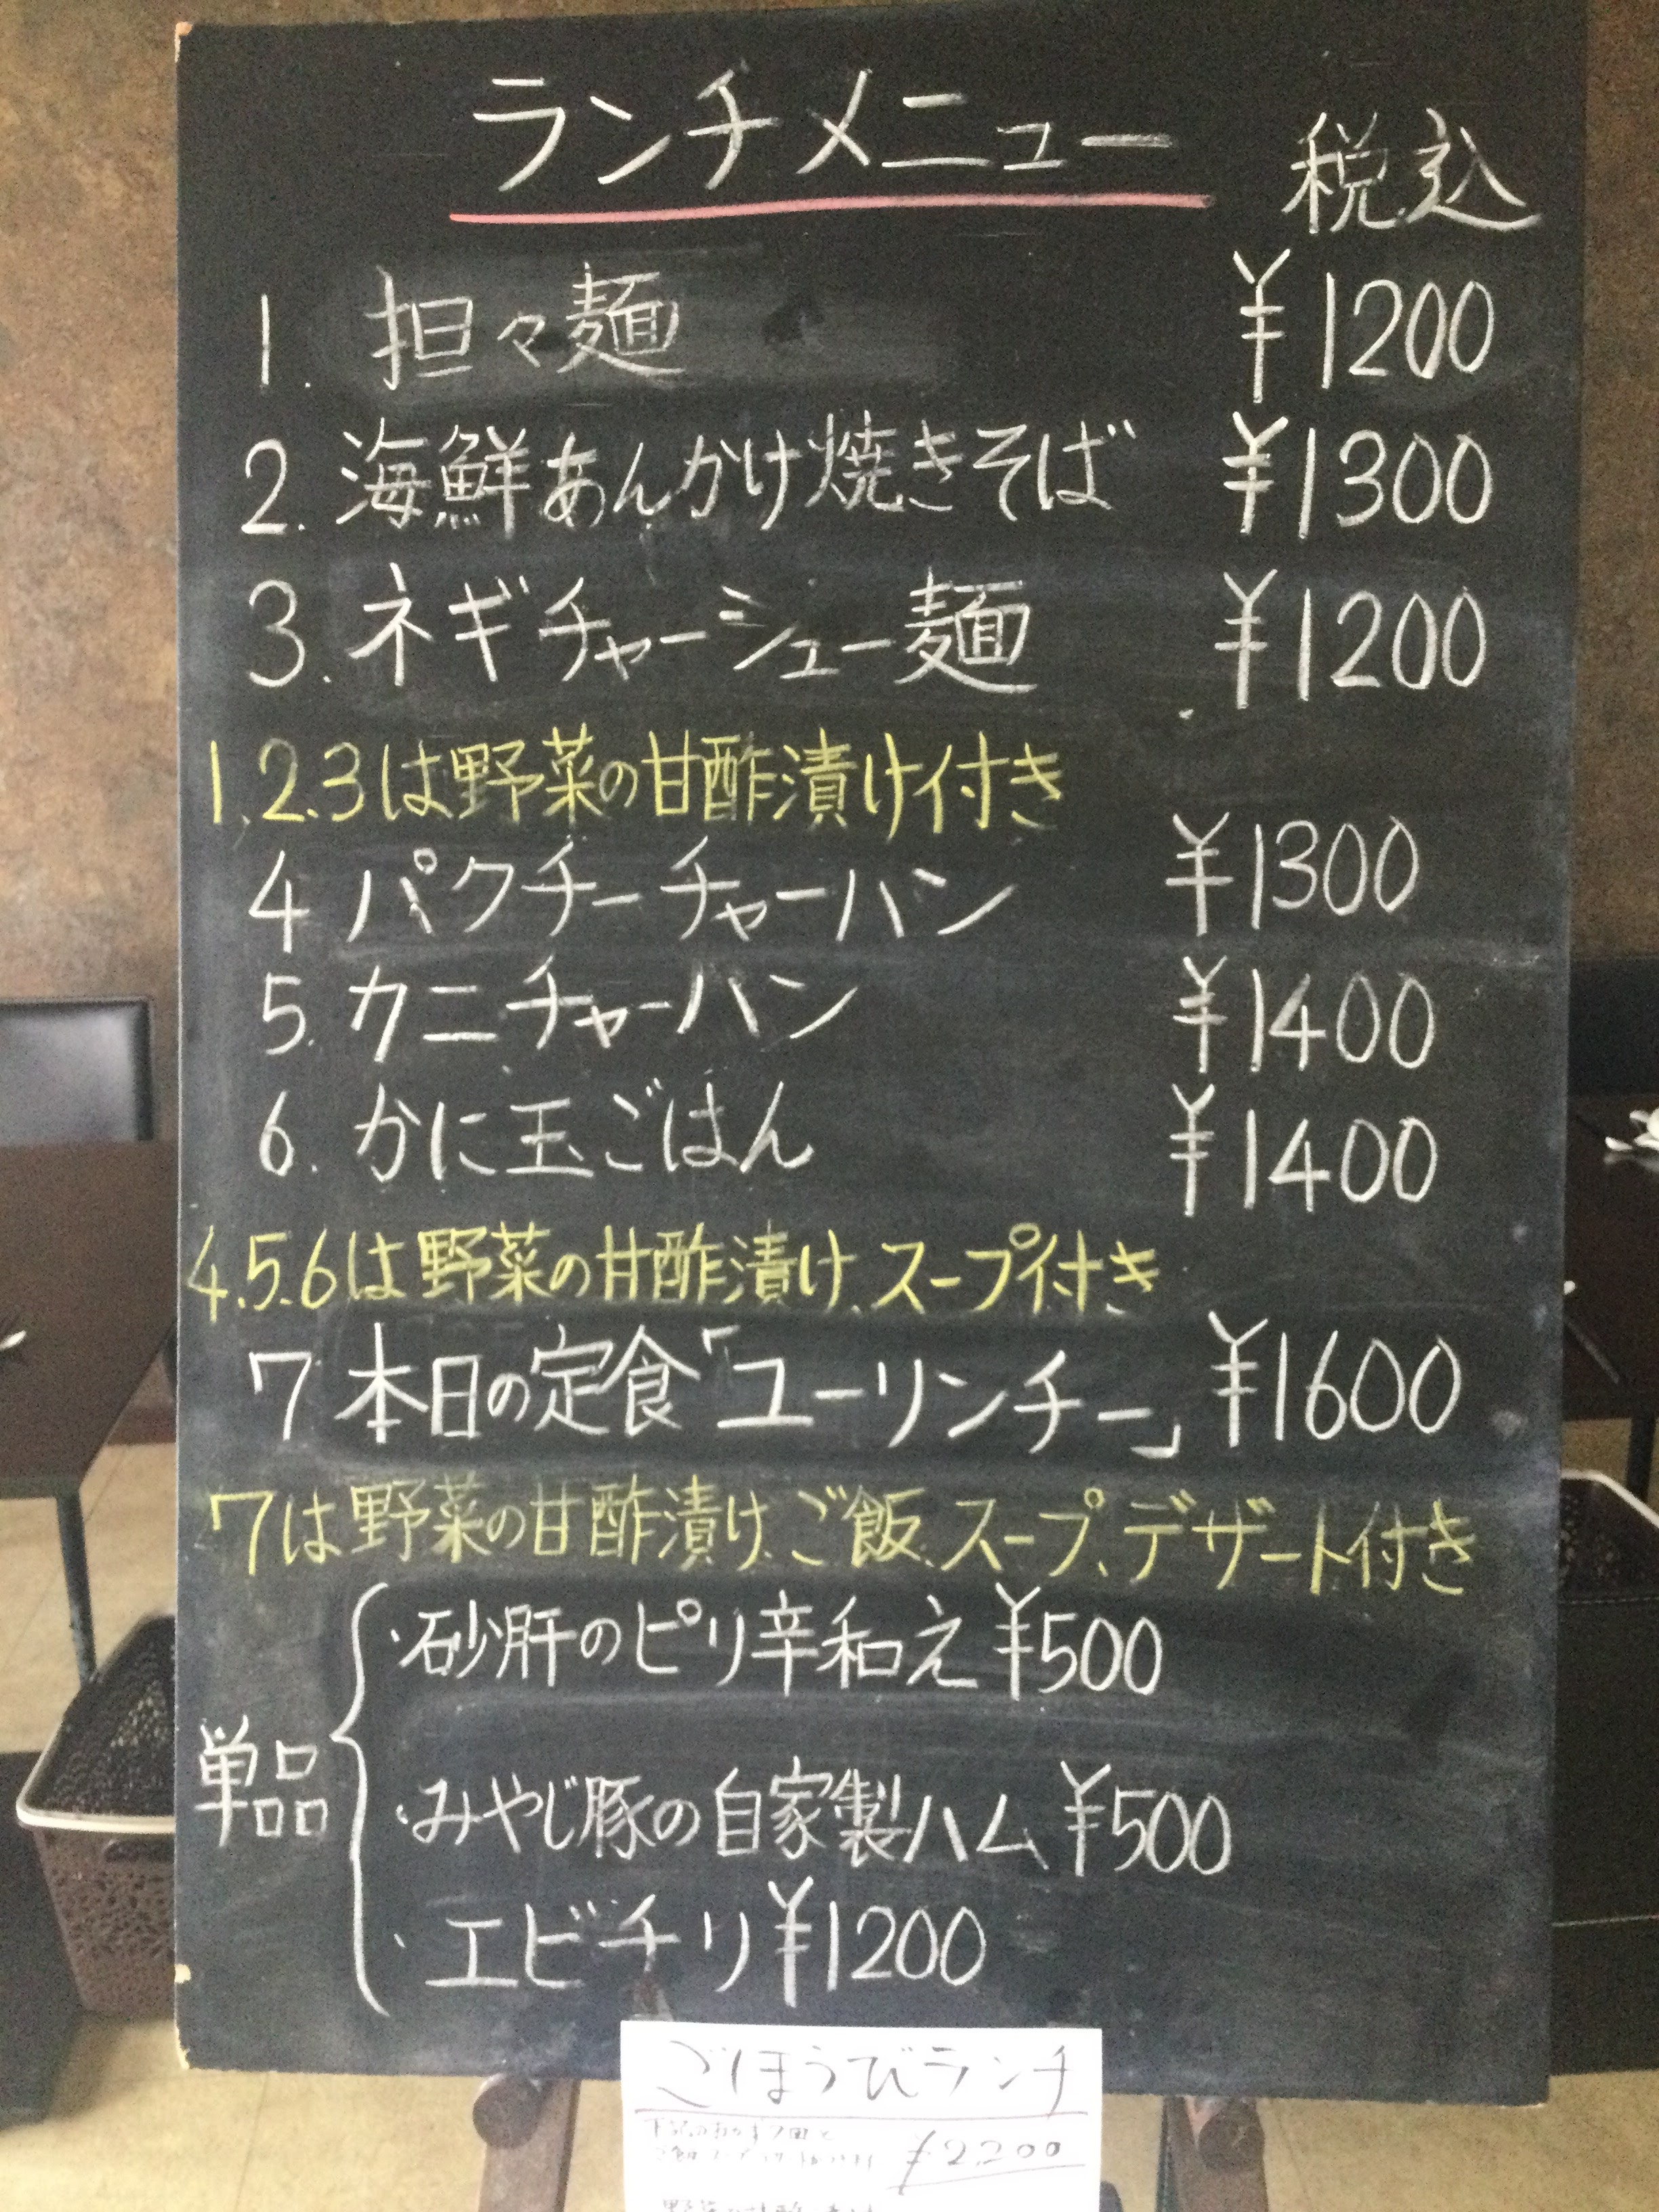 ランチメニュー 税込
1. 担々麺 ¥1200
2. 海鮮あんかけ焼きそば ¥1300
3. ネギチャーシュー麺 ¥1200
1.2.3は野菜の甘酢漬け付き
4 パクチーチャーハン ¥1300
5. カニチャーハン ¥1400
6. かに玉ごはん ¥1400
4.5.6は野菜の甘酢漬け、スープ付き
7 本日の定食「ユーリンチー」 ¥1600
7は野菜の甘酢漬け、ご飯、スープ、デザート付き
単品
・砂肝のピリ辛和え ¥500
・みやじ豚の自家製ハム ¥500
・エビチリ ¥1200
ごほうびランチ
¥2,200